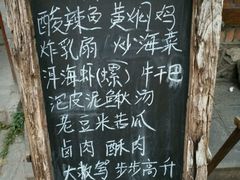 酸辣鱼 黄焖鸡
炸乳扇 / 炒海菜
洱海虾(螺) 牛干巴
泥皮泥鳅汤
老豆米苦瓜
卤肉 酥肉
大救驾 步步高升